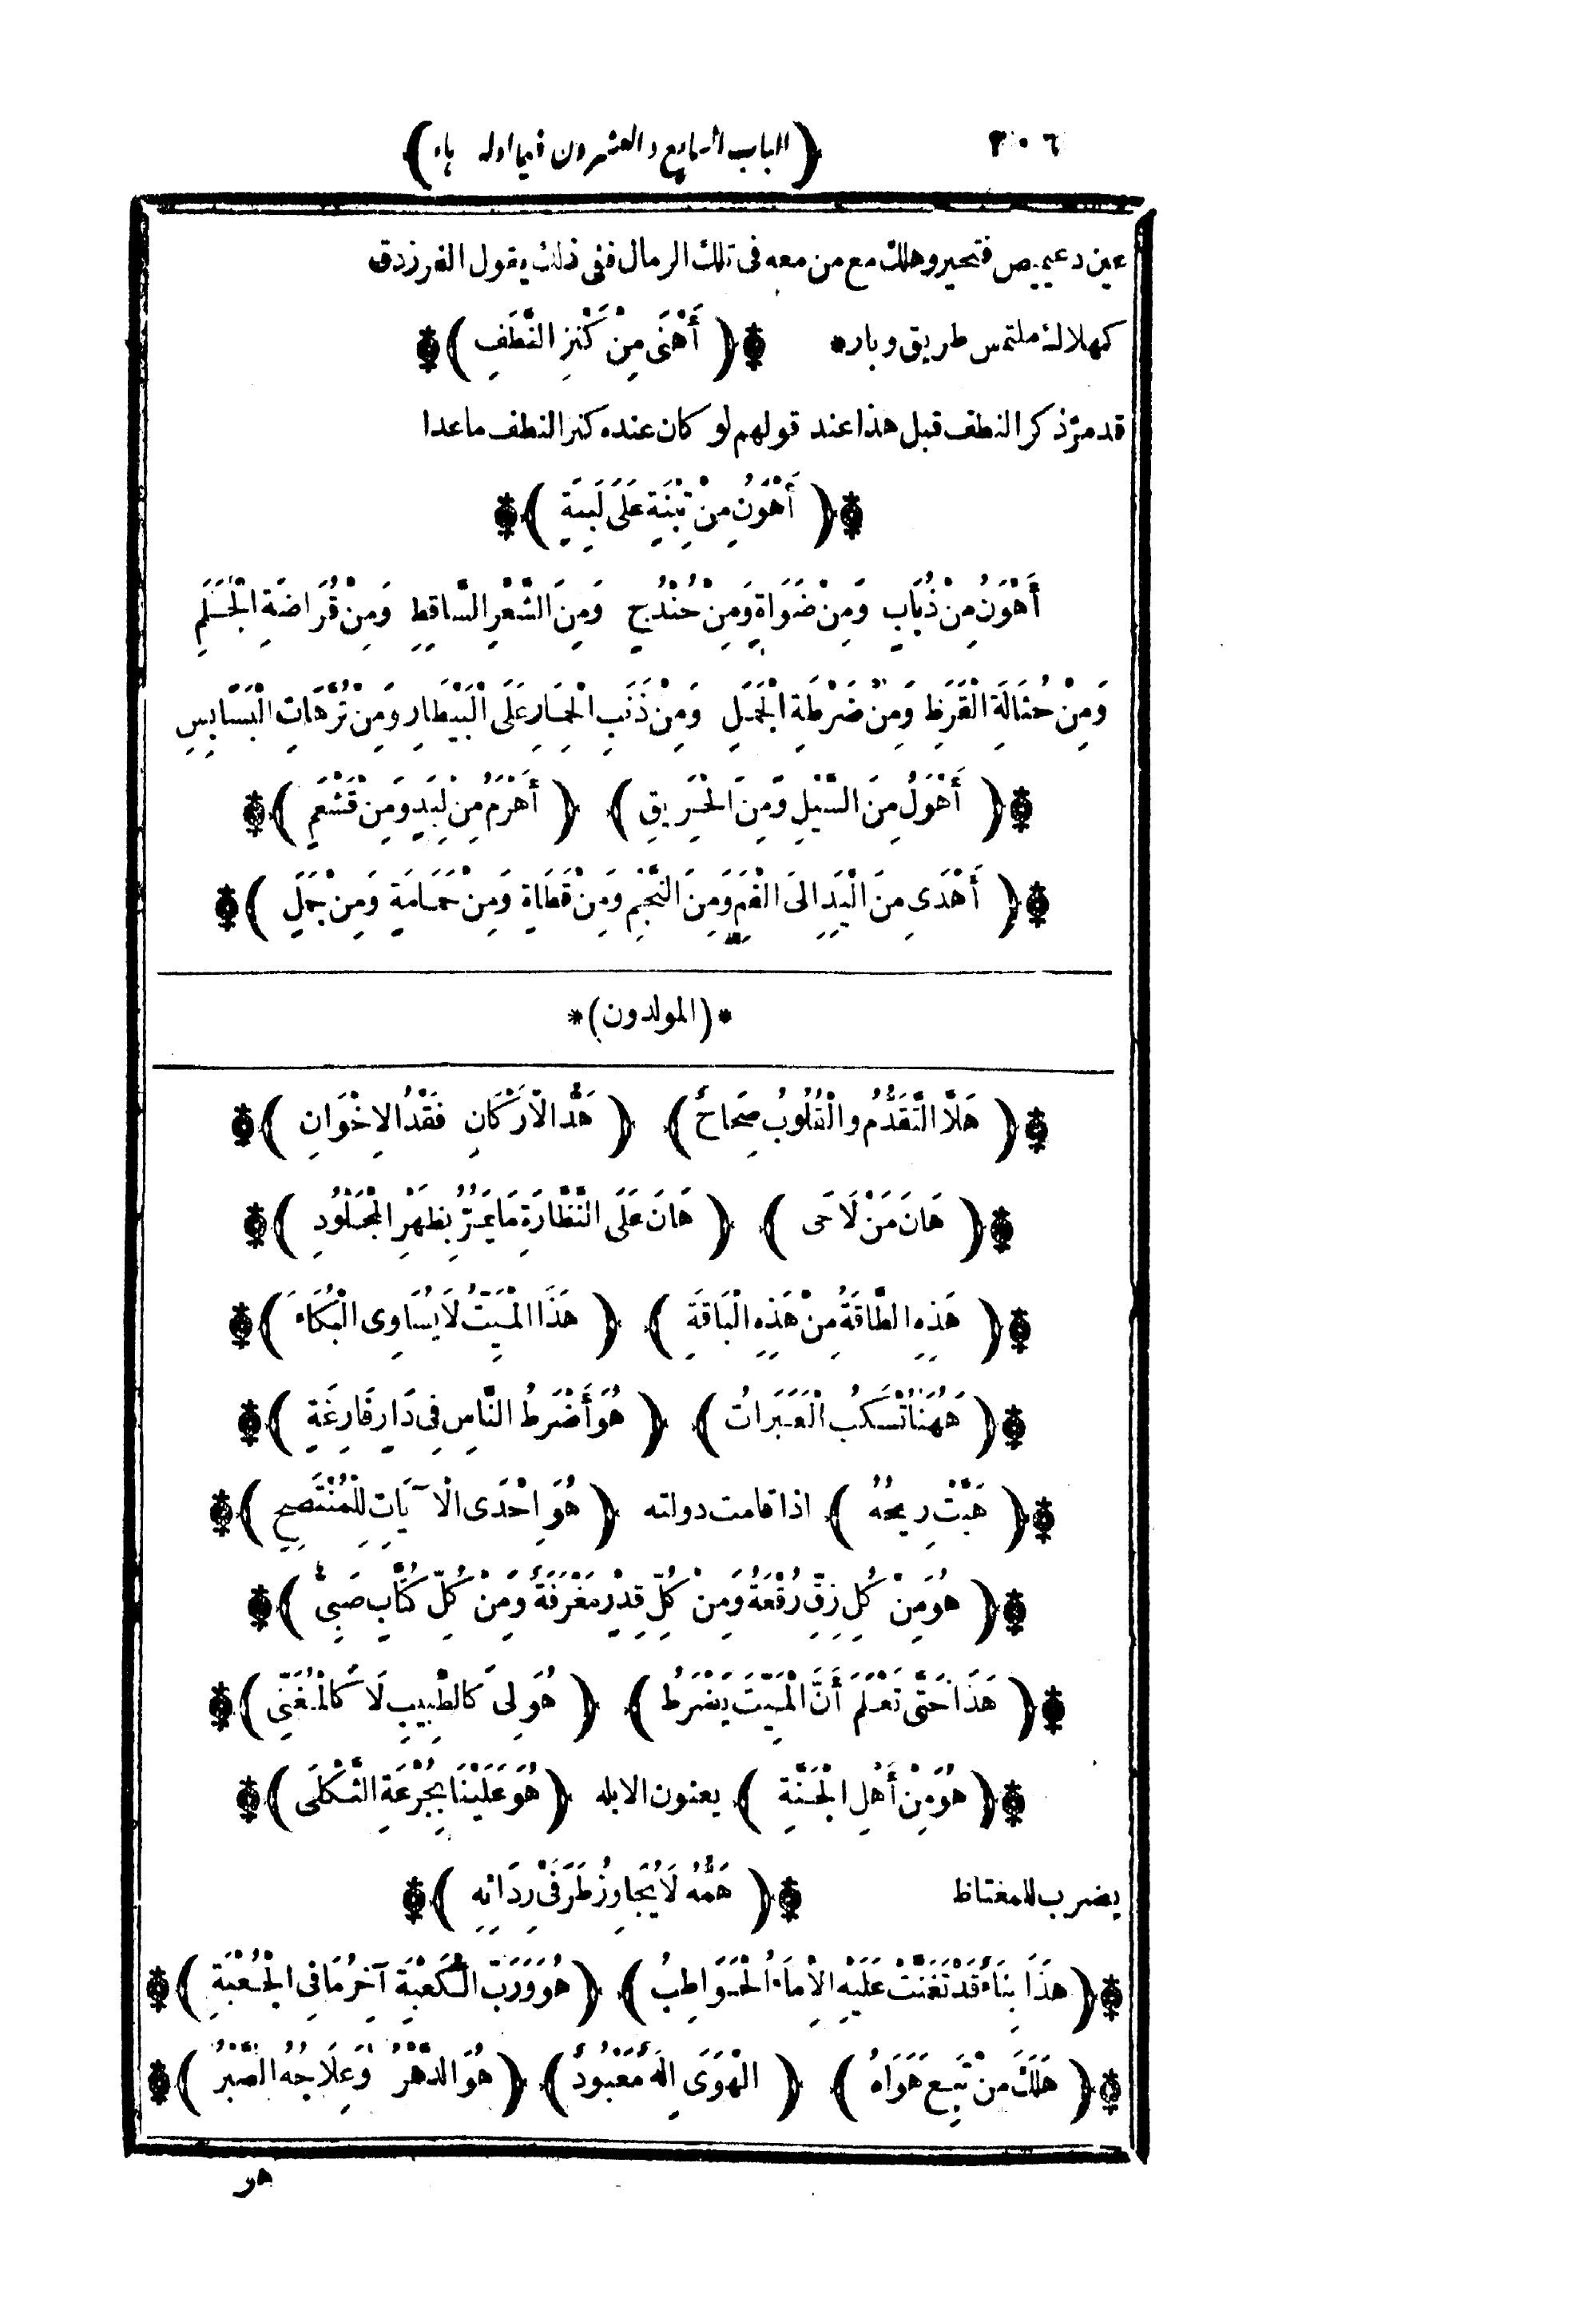 ٣٠٦ ﴿الباب السابع والعشرون فيما اوله هاء﴾
عين دعيميص فتحير وهلك مع من معه فى تلك الرمال ففى ذلك يقول الفرزدق
كهلاك ملتمس طريق وبار* ﴿أَهْنَى مِنْ كَنْزِ النَّطِفِ﴾
قد مرّ ذكر النطف قبل هذا عند قولهم لو كان عنده كنز النطف ما عدا
﴿أَهْوَنُ مِنْ تِبْنَةٍ عَلَى لَبِنَةٍ﴾
أَهْوَنُ مِنْ ذُبَابٍ وَمِنْ ضَوَاةٍ وَمِنْ حُنْدُجٍ وَمِنَ الشَّعْرِ السَّاقِطِ وَمِنْ قُرَاضَةِ الْجَلَمِ
وَمِنْ حُثَالَةِ الْقَرَظِ وَمِنْ ضَرْطَةِ الْجَمَلِ وَمِنْ ذَنَبِ الْحِمَارِ عَلَى الْبَيْطَارِ وَمِنْ تُرَّهَاتِ الْبَسَابِسِ
﴿أَهْوَلُ مِنَ السَّيْلِ وَمِنَ الْحَرِيقِ﴾ ﴿أَهْرَمُ مِنْ لُبَدٍ وَمِنْ قَشْعَمٍ﴾
﴿أَهْدَى مِنَ الْيَدِ إِلَى الْفَمِ وَمِنَ النَّجْمِ وَمِنْ قَطَاةٍ وَمِنْ حَمَامَةٍ وَمِنْ جَمَلٍ﴾
*(المولدون)*
﴿هَلَّا التَّقَدُّمُ والْقُلُوبُ صِحَاحٌ﴾ ﴿هَدُّ الْأَرْكَانِ فَقْدُ الْإِخْوَانِ﴾
﴿هَانَ مَنْ لَاحَى﴾ ﴿هَانَ عَلَى النَّظَّارَةِ مَا يَمُرُّ بِظَهْرِ الْمَجْلُودِ﴾
﴿هَذِهِ الطَّاقَةُ مِنْ هَذِهِ الْبَاقَةِ﴾ ﴿هَذَا الْمَيِّتُ لَا يُسَاوِى الْبُكَاءَ﴾
﴿هَهُنَا تُسْكَبُ الْعَبَرَاتُ﴾ ﴿هُوَ أَضْرَطُ النَّاسِ فِى دَارٍ فَارِغَةٍ﴾
﴿هَبَّتْ رِيحُهُ﴾ اذا قامت دولته ﴿هُوَ إِحْدَى الْآيَاتِ لِلْمُنْتَصِحِ﴾
﴿هُوَ مِنْ كُلِّ زِقٍّ رُقْعَةٌ وَمِنْ كُلِّ قِدْرٍ مَغْرَفَةٌ وَمِنْ كُلِّ كُتَّابٍ صَبِىٌّ﴾
﴿هَذَا حَتَّى تَعْلَمَ أَنَّ الْمَيِّتَ يَضْرَطُ﴾ ﴿هُوَ لِى كَالطَّبِيبِ لَا كَالْمُغَنِّى﴾
﴿هُوَ مِنْ أَهْلِ الْجَنَّةِ﴾ يعنون الابله ﴿هُوَ عَلَيْنَا بِجُرْعَةِ الثَّكْلَى﴾
يضرب للمغتاظ ﴿هَمُّهُ لَا يُجَاوِزُ طَرَفَىْ رِدَائِهِ﴾
﴿هَذَا بِنَاءٌ قَدْ تَغَنَّتْ عَلَيْهِ الْإِمَاءُ الْحَوَاطِبُ﴾ ﴿هُوَ وَرَبِّ الْكَعْبَةِ آخِرُ مَا فِى الْجُعْبَةِ﴾
﴿هَلَكَ مَنْ تَبِعَ هَوَاهُ﴾ ﴿الْهَوَى إِلَهٌ مَعْبُودٌ﴾ ﴿هُوَ الدَّهْرُ وَعِلَاجُهُ الصَّبْرُ﴾
هر